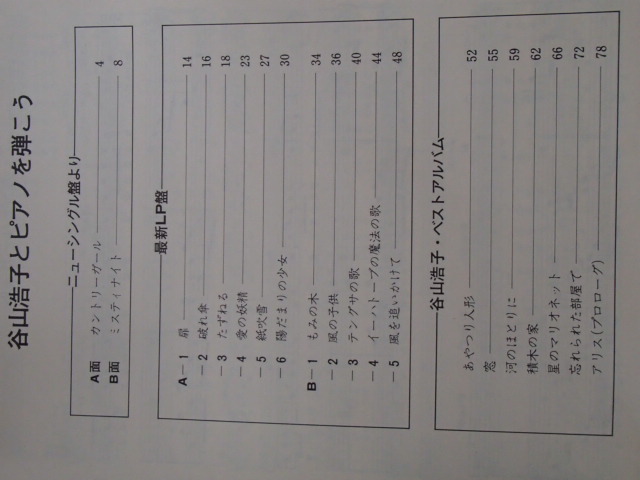 谷山浩子とピアノを弾こう
ニューシングル盤より
A面 カントリーガール 4
B面 ミスティナイト 8
最新LP盤
A-1 扉 14
-2 破れ傘 16
-3 たずねる 18
-4 愛の妖精 23
-5 紙吹雪 27
-6 陽だまりの少女 30
B-1 もみの木 34
-2 風の子供 36
-3 テングサの歌 40
-4 イーハトーブの魔法の歌 44
-5 風を追いかけて 48
谷山浩子・ベストアルバム
あやつり人形 52
窓 55
河のほとりに 59
積木の家 62
星のマリオネット 66
忘れられた部屋で 72
アリス(プロローグ) 78